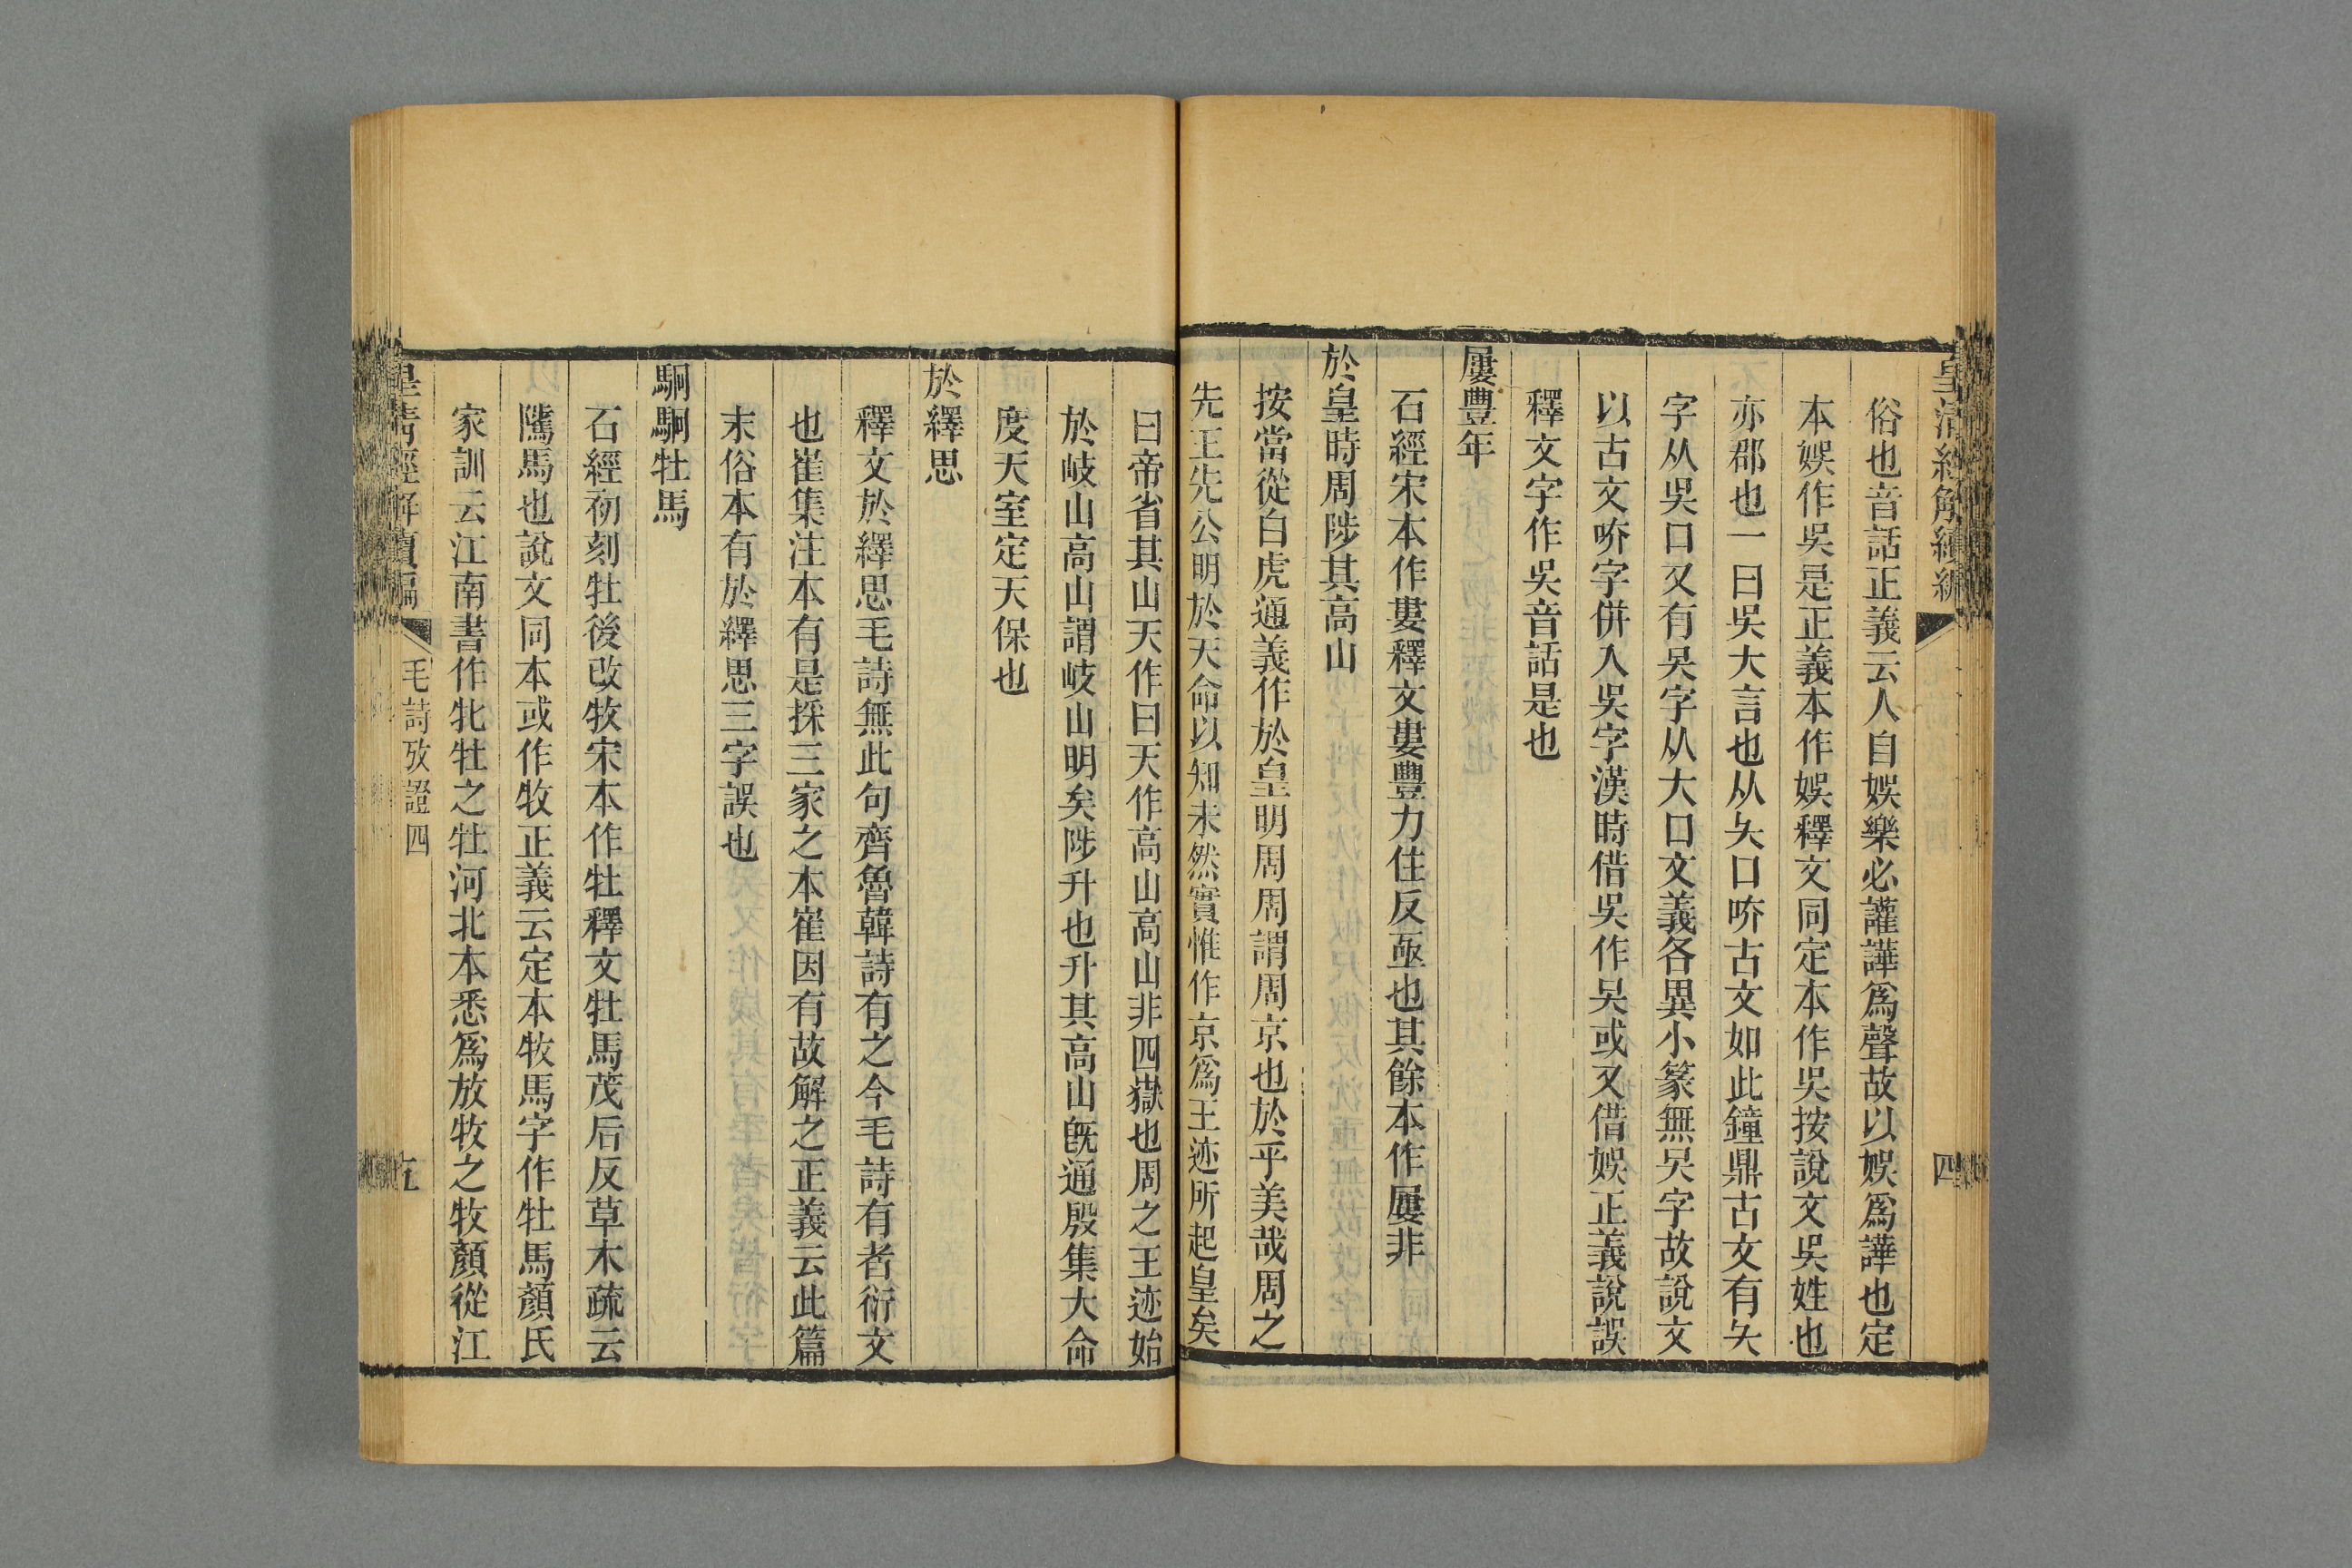 皇清經解續編
四
俗也音話正義云人自娛樂必讙譁爲聲故以娛爲譁也定
本娛作吳是正義本作娛釋文同定本作吳按說文吳姓也
亦郡也一曰吳大言也从夨口㕦古文如此鐘鼎古文有夨
字从吳口又有吴字从大口文義各異小篆無吴字故說文
以古文㕦字併入吳字漢時借吳作吴或又借娛正義說誤
釋文字作吳音話是也
屢豐年
石經宋本作婁釋文婁豐力住反亟也其餘本作屢非
於皇時周陟其高山
按當從白虎通義作於皇明周周謂周京也於乎美哉周之
先王先公明於天命以知未然實惟作京爲王迹所起皇矣
曰帝省其山天作曰天作高山高山非四嶽也周之王迹始
於岐山高山謂岐山明矣陟升也升其高山旣通殷集大命
度天室定天保也
於繹思
釋文於繹思毛詩無此句齊魯韓詩有之今毛詩有者衍文
也崔集注本有是採三家之本崔因有故解之正義云此篇
末俗本有於繹思三字誤也
駉駉牡馬
石經初刻牡後改牧宋本作牡釋文牡馬茂后反草木疏云
騭馬也說文同本或作牧正義云定本牧馬字作牡馬顏氏
家訓云江南書作牝牡之牡河北本悉爲放牧之牧顏從江
皇清經解續編
毛詩攷證四
五